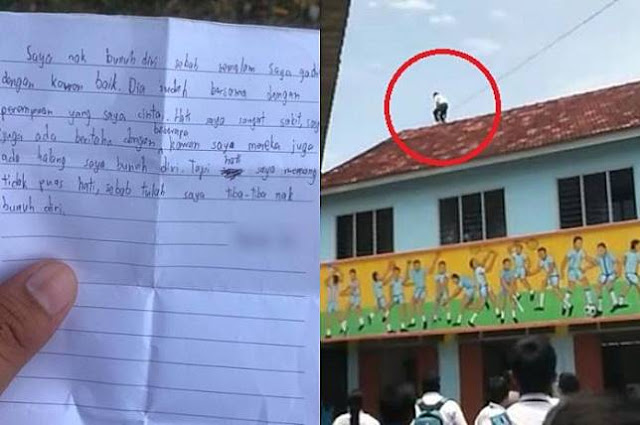 Saya nak bunuh diri sebab semalam saya gaduh
dengan kawan baik. Dia sudah bersama dengan
perempuan yang saya cinta. Hati saya sangat sakit, saya
juga ada dengan beberapa kawan saya mereka juga
ada halang saya bunuh diri. Tapi hati saya memang
tidak puas hati, sebab itulah saya tiba-tiba nak
bunuh diri.